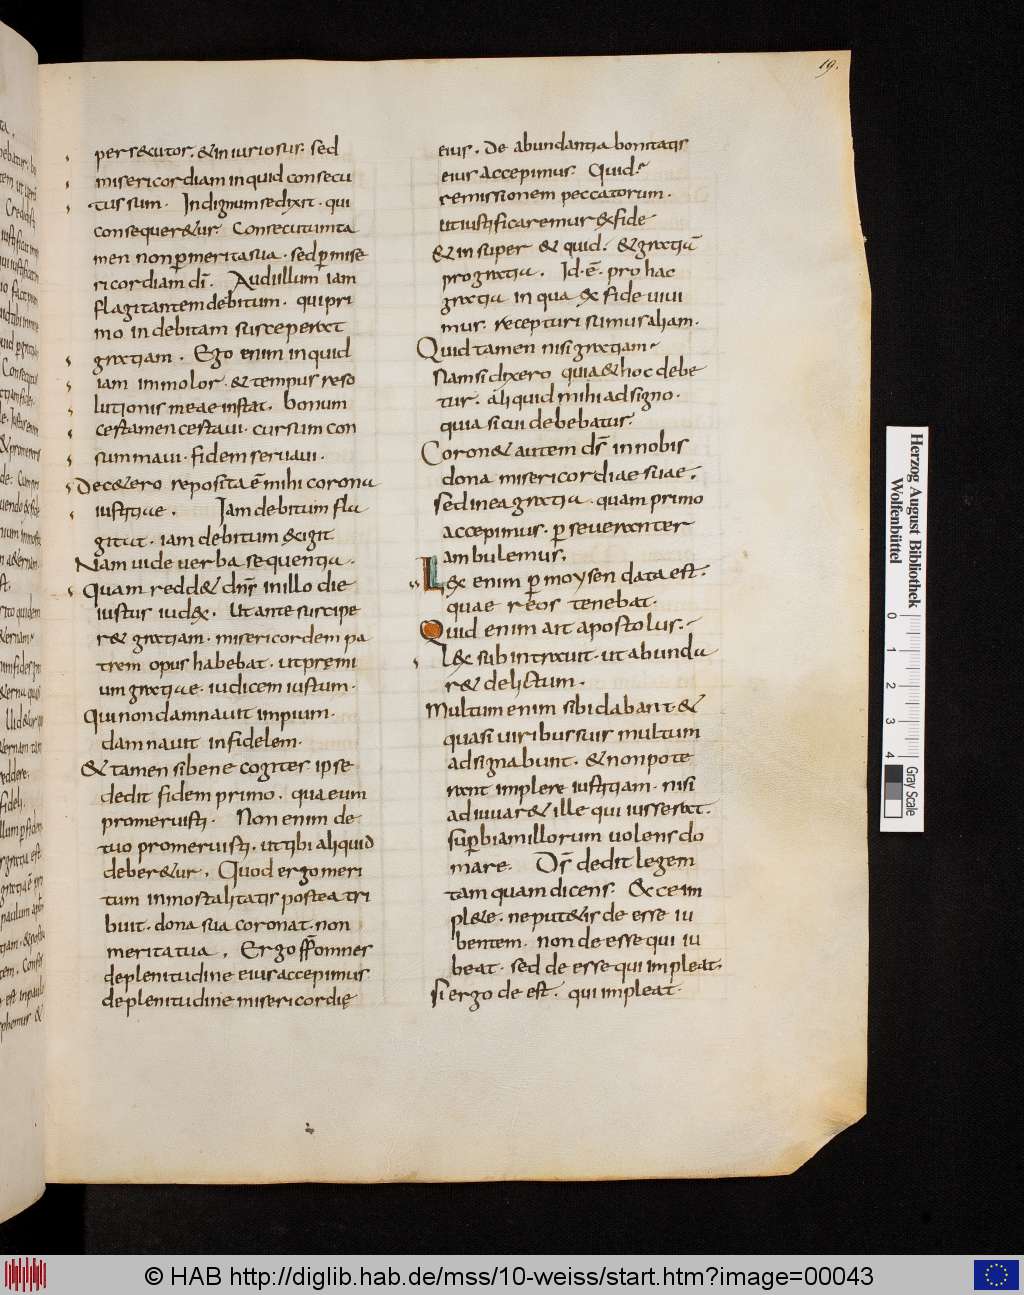 19.
persecutor. & iniuriosus. sed
misericordiam inquid consecu
tus sum. Indignum se dixit. qui
consequer&ur. Consecutum ta
men non p̄ merita sua. sed p̄ mise
ricordiam dī. Audi illum iam
flagitantem debitum. qui pri
mo indebitam susceperat
gratiam. Ego enim inquid
iam immolor. & tempus reso
lutionis meae instat. bonum
certamen certavi. cursum con
summavi. fidem servavi.
De c&ero reposita ē mihi corona
iustitiae. Iam debitum fla
gitat. iam debitum exigit
Nam vide verba sequentia.
Quam redd& dn̄s in illo die
iustus iudex. Ut ante suscipe
r& gratiam. misericordem pa
trem opus habebat. ut premi
um gratiae. iudicem iustum.
Qui non damnavit impium.
damnavit infidelem.
& tamen si bene cogites ipse
dedit fidem primo. qua eum
promeruisti. Non enim de
tuo promeruisti. ut tibi aliquid
deber&ur. Quod ergo meri
tum inmortalitatis postea tri
buit. dona sua coronat. non
merita tua. Ergo ff̄ omnes
de plenitudine eius accepimus
de plenitudine misericordię
eius. De abundantia bonitatis
eius accepimus. Quid?
remissionem peccatorum.
ut iustificaremur ex fide
& insuper & quid? & gratiā
pro gratia. Id. ē. pro hac
gratia in qua ex fide vivi
mus. recepturi sumus aliam.
Quid tamen nisi gratiam?
Nam si dixero quia & hoc debe
tur. aliquid mihi adsigno.
quia si cui debebatur.
Coron& autem dn̄s in nobis
dona misericordiae suae.
sed in ea gratia. quam primo
accepimus. p̄severanter
ambulemus.
Lex enim p̄ moysen data est.
quae reos tenebat.
Quid enim ait apostolus?
Lex subintravit. ut abunda
r& delictum.
Multum enim sibi dabant. &
quasi viribus suis multum
adsignabunt. & non pote
rant implere iustitiam. nisi
adiuvar& ille qui iusserat.
sup̄biam illorum volens do
mare. Dn̄s dedit legem
tamquam dicens. Ecce im
pl&e. ne put&is deesse iu
bentem. non deesse qui iu
beat. sed deesse qui impleat.
si ergo deest. qui impleat.
Herzog August Bibliothek
Wolfenbüttel
0 1 2 3 4
Gray Scale
© HAB http://diglib.hab.de/mss/10-weiss/start.htm?image=00043